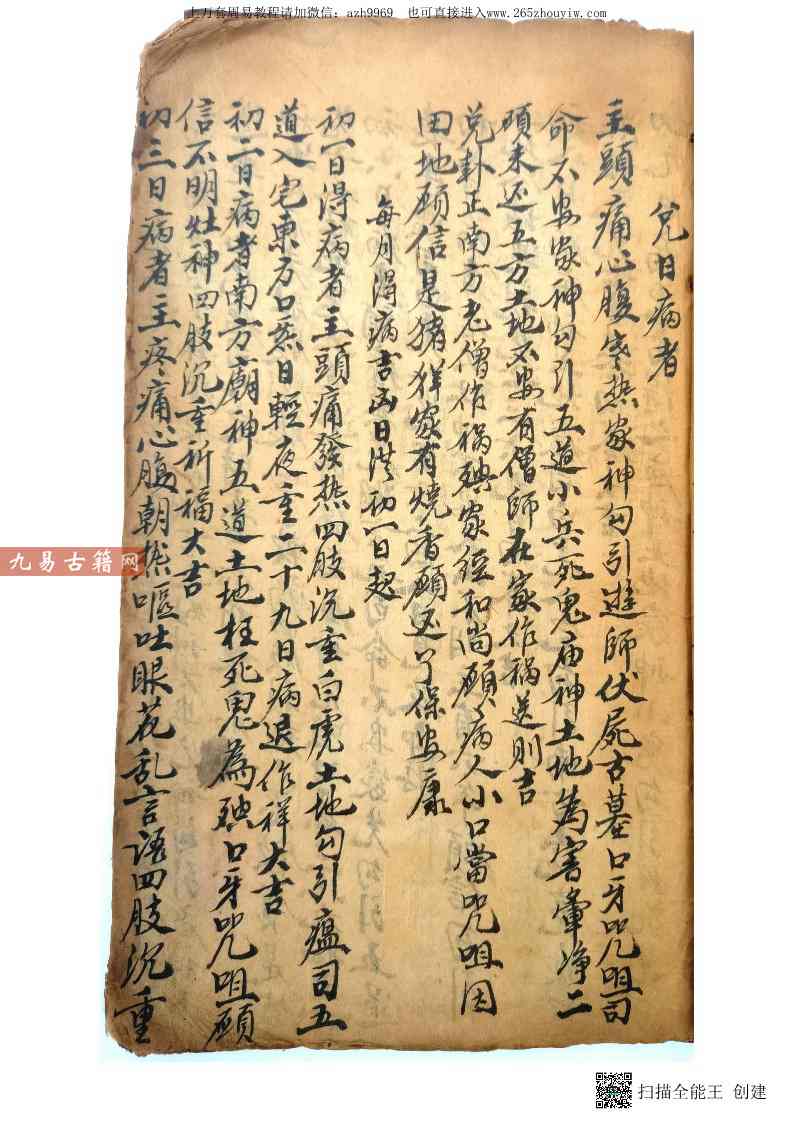 上万套周易教程请加微信：azh9969 也可直接进入www.265zhouyiw.com
兌日病者
主頭痛心腹寒熱家神勾引遊師伏屍古墓口牙咒咀司
命不安家神勾引五道小兵死鬼庙神土地為害暈净二
願未还五方土地不安有僧師在家作禍送則吉
兌卦正南方老僧作禍殃家經和尚願病人小口當咒咀因
田地願信是猪羊家有燒香願还了保安康
每月得病吉凶日洪初一日起
初一日得病者主頭痛發热四肢沉重白虎土地勾引瘟司五
道入宅東方口惹日輕夜重二十九日病退作祥大吉
初二日病者南方廟神五道土地枉死鬼為殃口牙咒咀願
信不明灶神四肢沉重祈福大吉
初三日病者主疼痛心腹朝热嘔吐眼花乱言語四肢沉重
九易古籍网
扫描全能王 创建